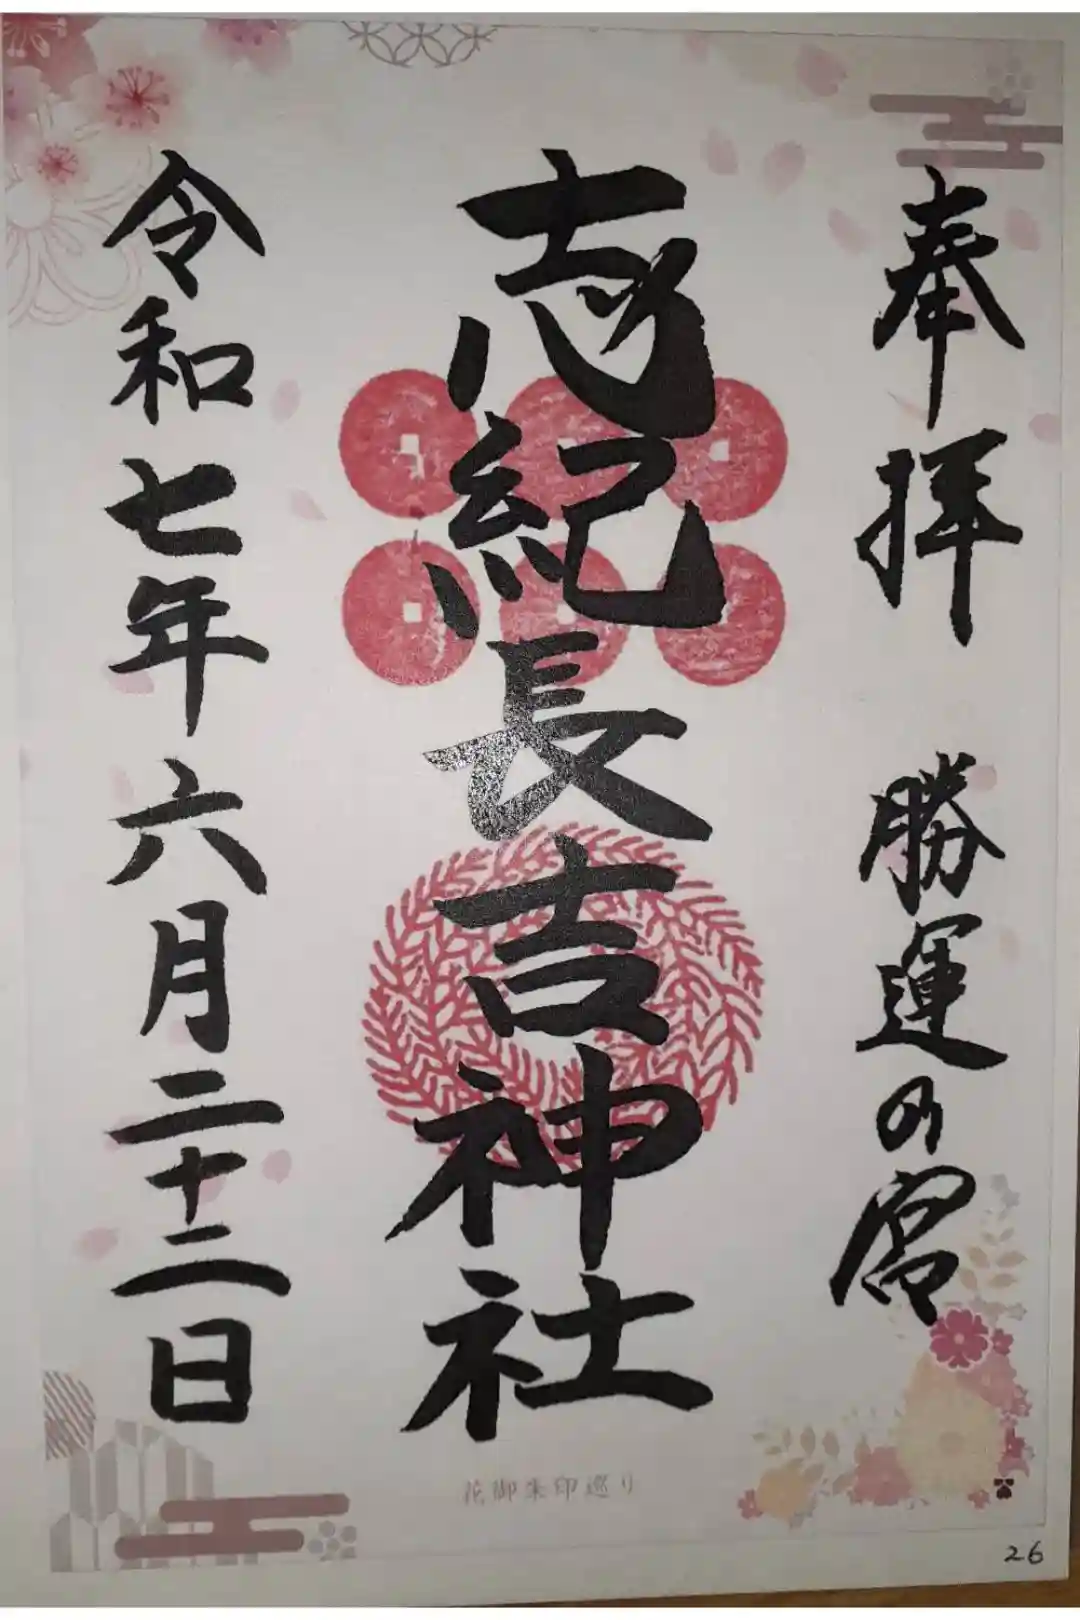 奉拝 勝運の宮
志紀長吉神社
令和七年六月二十二日
花御朱印巡り
26